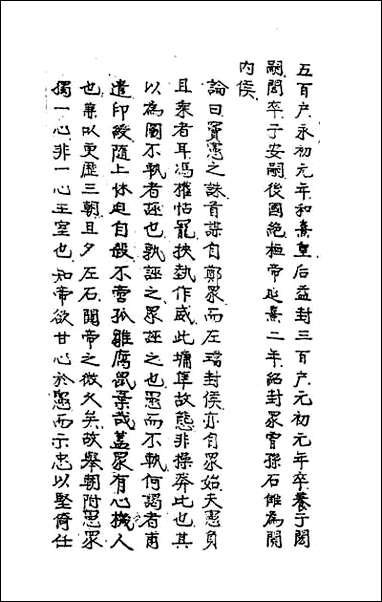 五百户永初元年和熹皇后益封三百户元初元年卒養子閎
嗣閎卒子安嗣後國絶桓帝延熹二年紹封眾曾孫石雠為關
内侯
論曰竇憲之誅首謀自鄭眾而左璫封侯亦自眾始夫憲負
且乘者耳馮權怙寵挾埶作威此墉隼故態非操莽比也其
以為圖不軌者誣也孰誣之眾誣之也憲而不軌何謁者甫
遣印綬隨上休迫自殺不啻孤雛腐鼠棄哉蓋眾有心機人
也兼以更歷三朝且夕左右閱帝之微久矣故舉朝附憲眾
獨一心非一心王室也知帝欲甘心於憲而示忠以堅倚任